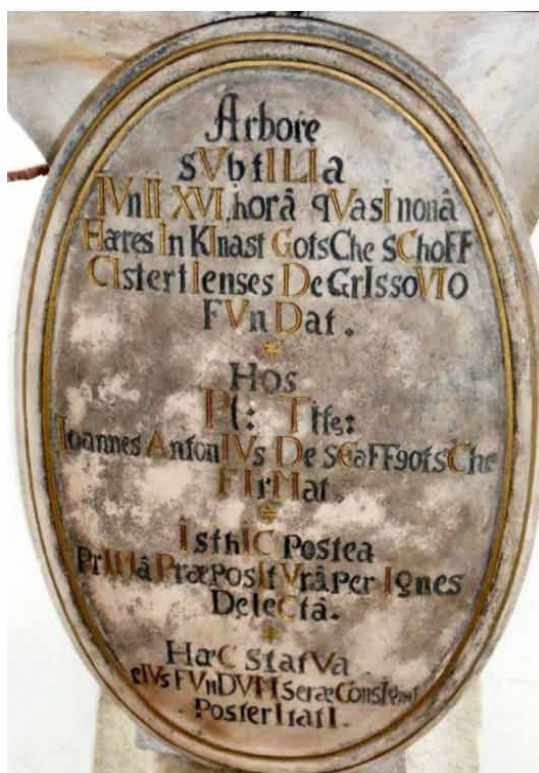 Arbore
sVbtILIa
IVnII XVI, horâ qVasI nonâ
Hæres In KInast GotsChe sChoFF
CIstertIenses De GrIssoVIO
FVnDat.
Hos
Pl: Tit:
Ioannes AntonIVs De sCaFFgotsChe
FIrMat.
IsthIC postea
PrIMâ PræposItVrâ per Ignes
DeleCtâ.
HæC statVa
eIVs FVnDVM seræ
PosterItatI.